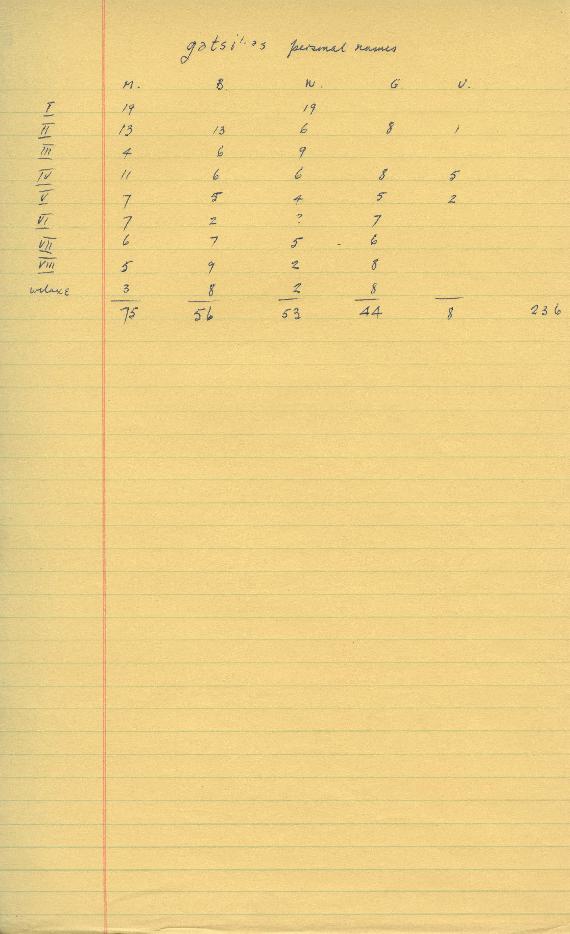 personal names
M. B. W. G U.
I 19 19
II 13 13 6 8 1
III 4 6 9
IV 11 6 6 8 5
V 7 5 4 5 2
VI 7 2 ? 7
VII 6 7 5 - 6
VIII 5 9 2 8
3 8 2 8
75 56 53 44 8 236